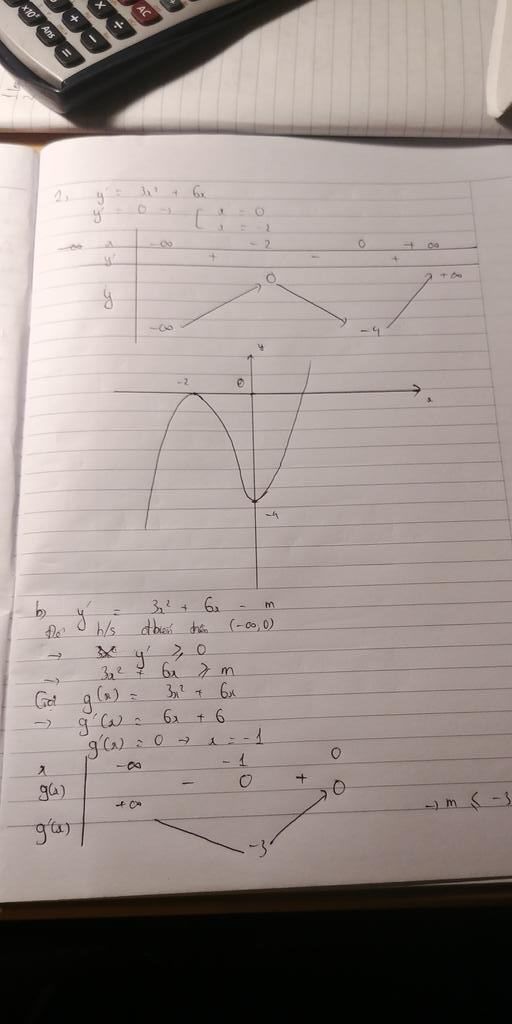 x10ˣ Ans + − × ÷ AC =
1, y' = 3x² + 6x
y' = 0 → [ x = 0
x = -2
x -∞ -2 0 +∞
y' + - +
y -∞ 0 -4 +∞
y
-2 0
x
-4
b, y' = 3x² + 6x - m
Để h/s đbiến trên (-∞,0)
→ y' ≥ 0
→ 3x² + 6x ≥ m
Gọi g(x) = 3x² + 6x
→ g'(x) = 6x + 6
g'(x) = 0 → x = -1
x -∞ -1 0
g(x) - 0 +
g'(x) +∞ -3 0
→ m ≤ -3